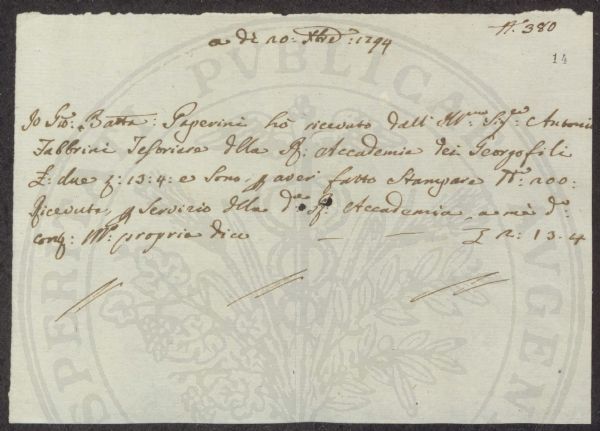 N.° 380
a dì 20: Xbre: 1794
14
Io Gio: Batta: Paperini hò ricevuto dall' Ill.mo Sig.re Antonio
Fabbrini Tesoriere della R: Accademia dei Georgofili
£: due s: 13: 4: e sono, p averi fatto Stampare N.° 200:
Ricevute, p Servizio della d.a R: Accademia, a me d.°
cont: M.° propria dico — — £ 2: 13: 4
PVBLICA
PROSPERITA
AVGEN